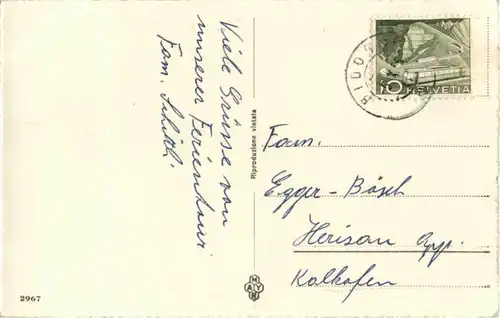 Viele Grüsse von
unserer Ferienhaus
Fam. Schittl.
Riproduzione vietata
10 HELVETIA
Fam.
Egger - Bösch
Herisau App.
Kalkofen
MAYR
2967